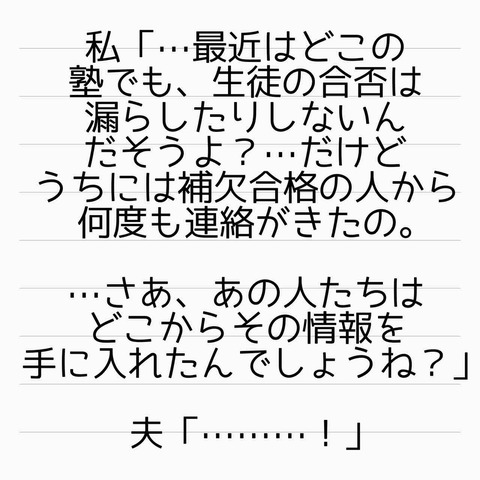 私「…最近はどこの
塾でも、生徒の合否は
漏らしたりしないん
だそうよ？…だけど
うちには補欠合格の人から
何度も連絡がきたの。
…さあ、あの人たちは
どこからその情報を
手に入れたんでしょうね？」
夫「………！」